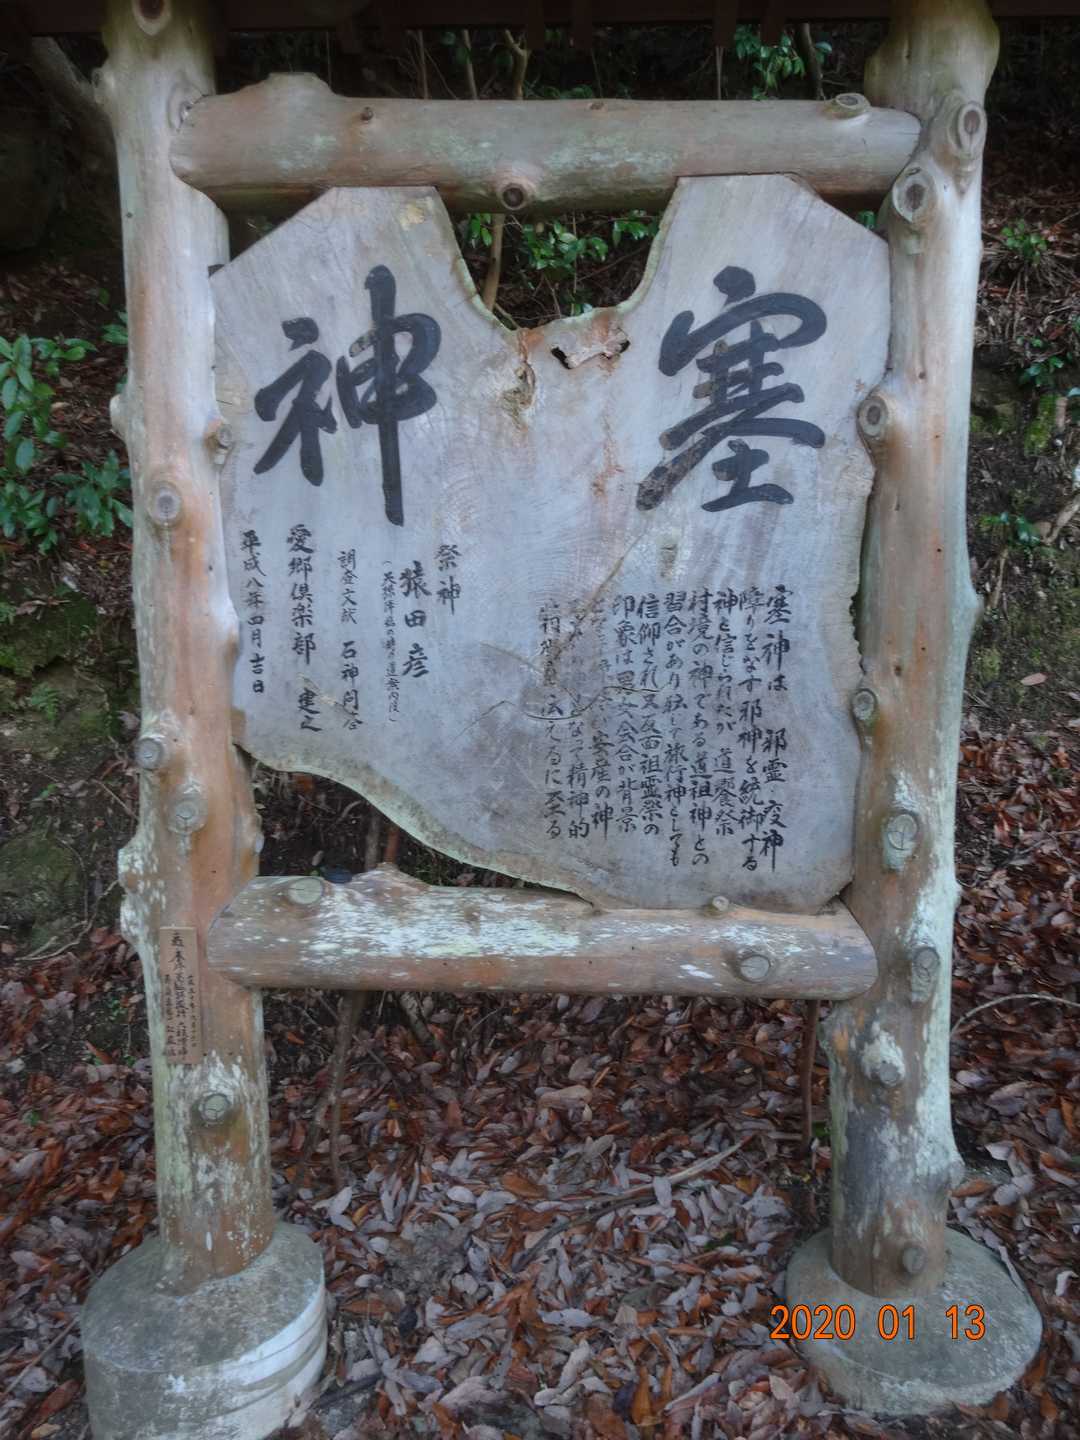 塞神
塞神は 邪霊・疫神
障りをなす邪神を統御する
神と信じられたが 道饗祭
村境の神である道祖神との
習合があり転じて旅行神としても
信仰され又反面祖霊祭の
印象は男女会合が背景
安産の神
なって精神的
るに至る
祭神
猿田彦
(天孫降臨の時の道案内役)
調査文献 石神問答
愛郷倶楽部 建之
平成八年四月吉日
2020 01 13